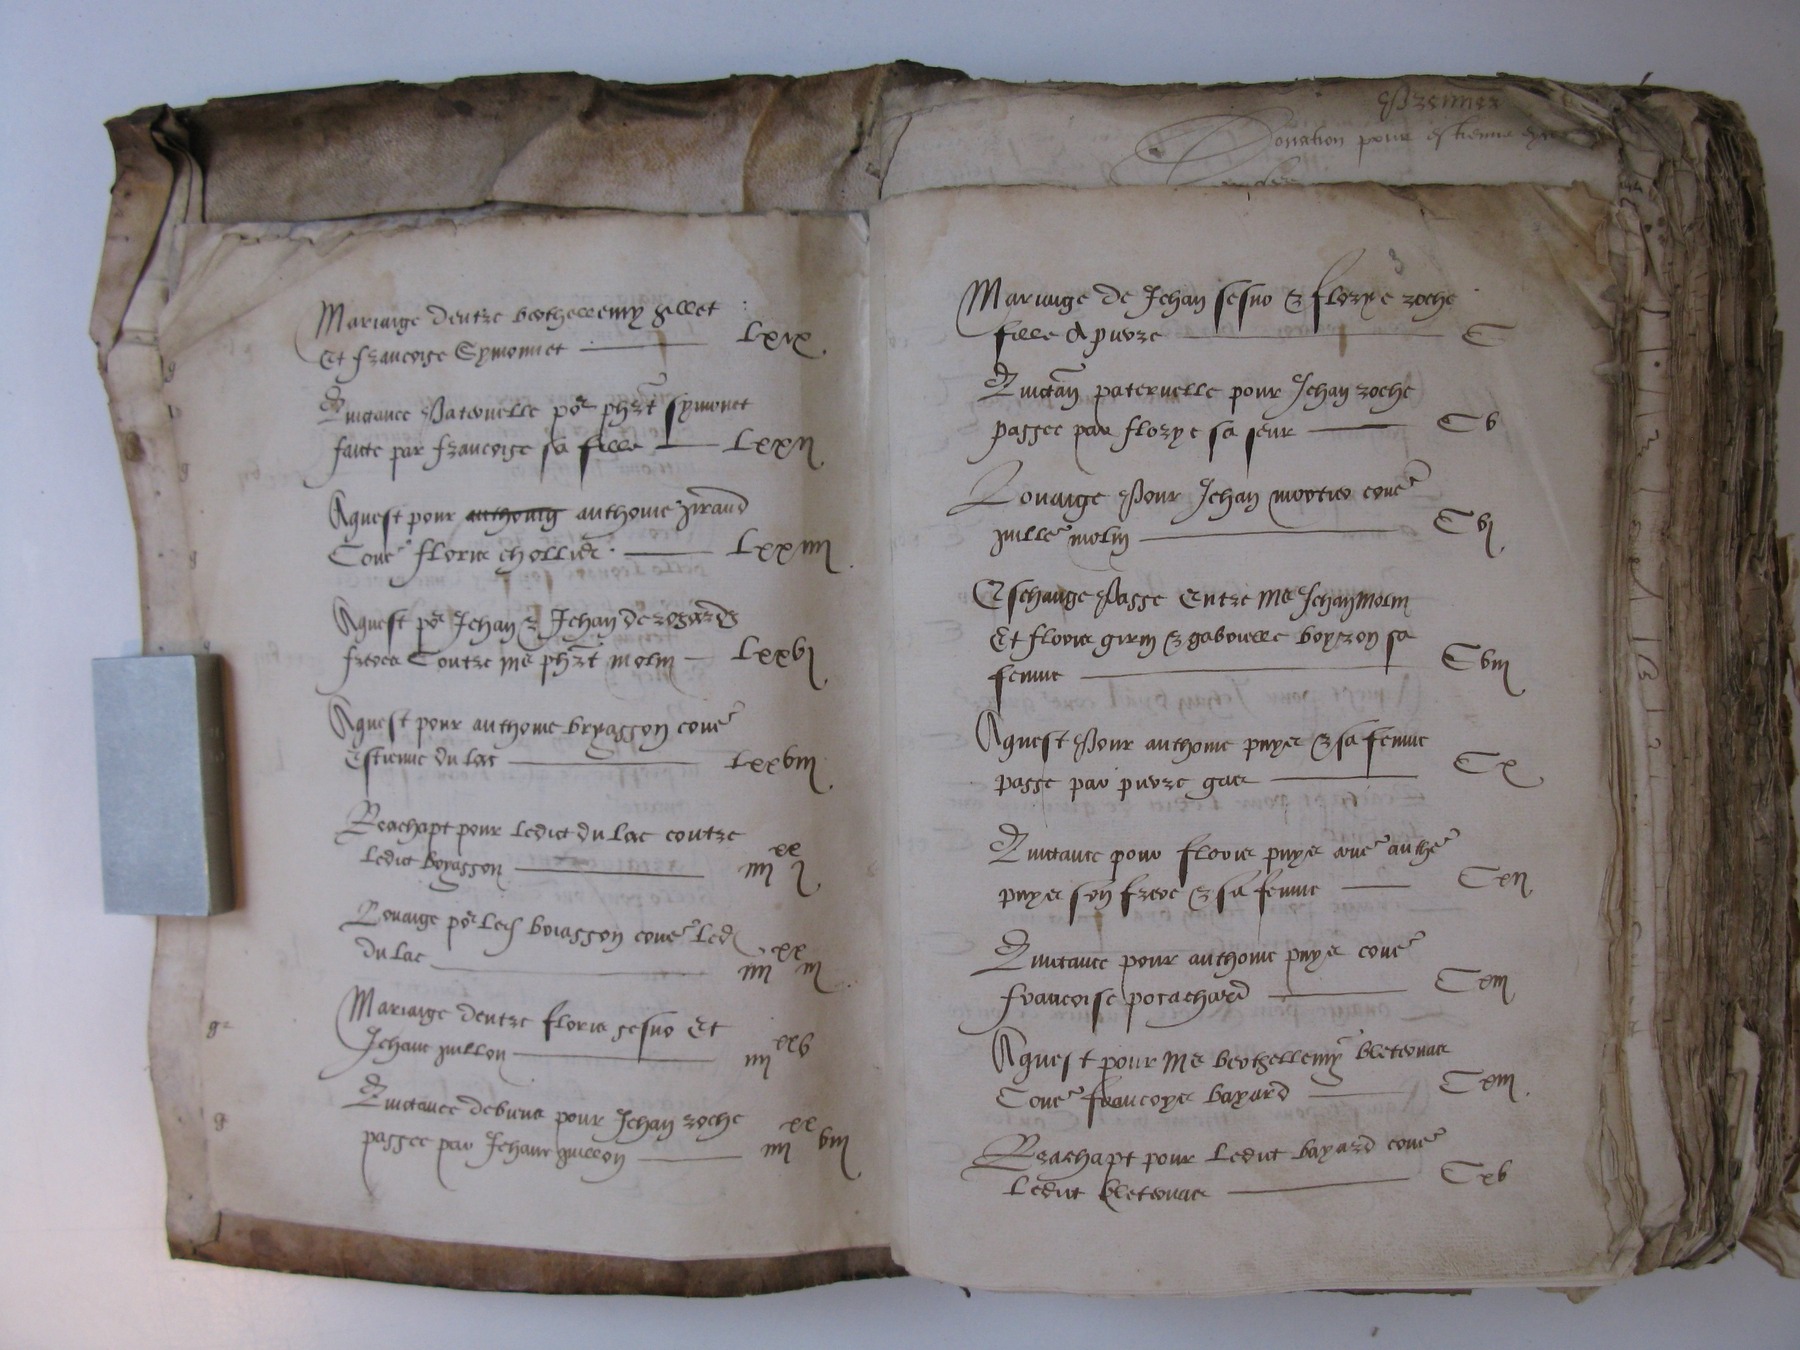 Mariaige dentre berthellemy gillet
Et francoise Symonnet LXIX
Quictance paternelle por phzt symonet
faicte par francoise sa fille LXXII
Aquest pour anthoine giraud
Contre florie chollier LXXIIII
Aquest por Jehan & Jehan de
freres Contre me phzt molin LXXVI
Aquest pour anthoine bryasson contre
Estienne du lac LXXVIII
Reachapt pour ledict du lac contre
ledict bryasson IIIIxx I
Louaige por led briasson contre led
du lac IIIIxx III
Mariaige dentre florie sesno Et
Jehan guillon IIIIxx V
Quictance pour Jehan roche
passee par Jehan guillon IIIIxx VIII
Donation pour estienne
3
Mariaige de Jehan sesno & florye roche
fille a pierre C
Quictan paternelle pour Jehan roche
passee par florye sa seur CV
Louaige pour Jehan contre
guille molin CVI
Eschange passe Entre me Jehan molin
Et florie girin & gabrielle boyron sa
femme CVIII
Aquest pour anthoine puyet & sa femme
passe par pierre CX
Quictance pour florie puyet contre anthe
puyet son frere & sa femme CXII
Quictance pour anthoine puyet contre
francoise potachard CXIII
Aquest pour me berthellemy
Contre francoys bayard CXIIII
Reachapt pour ledict bayard contre
ledict CXV